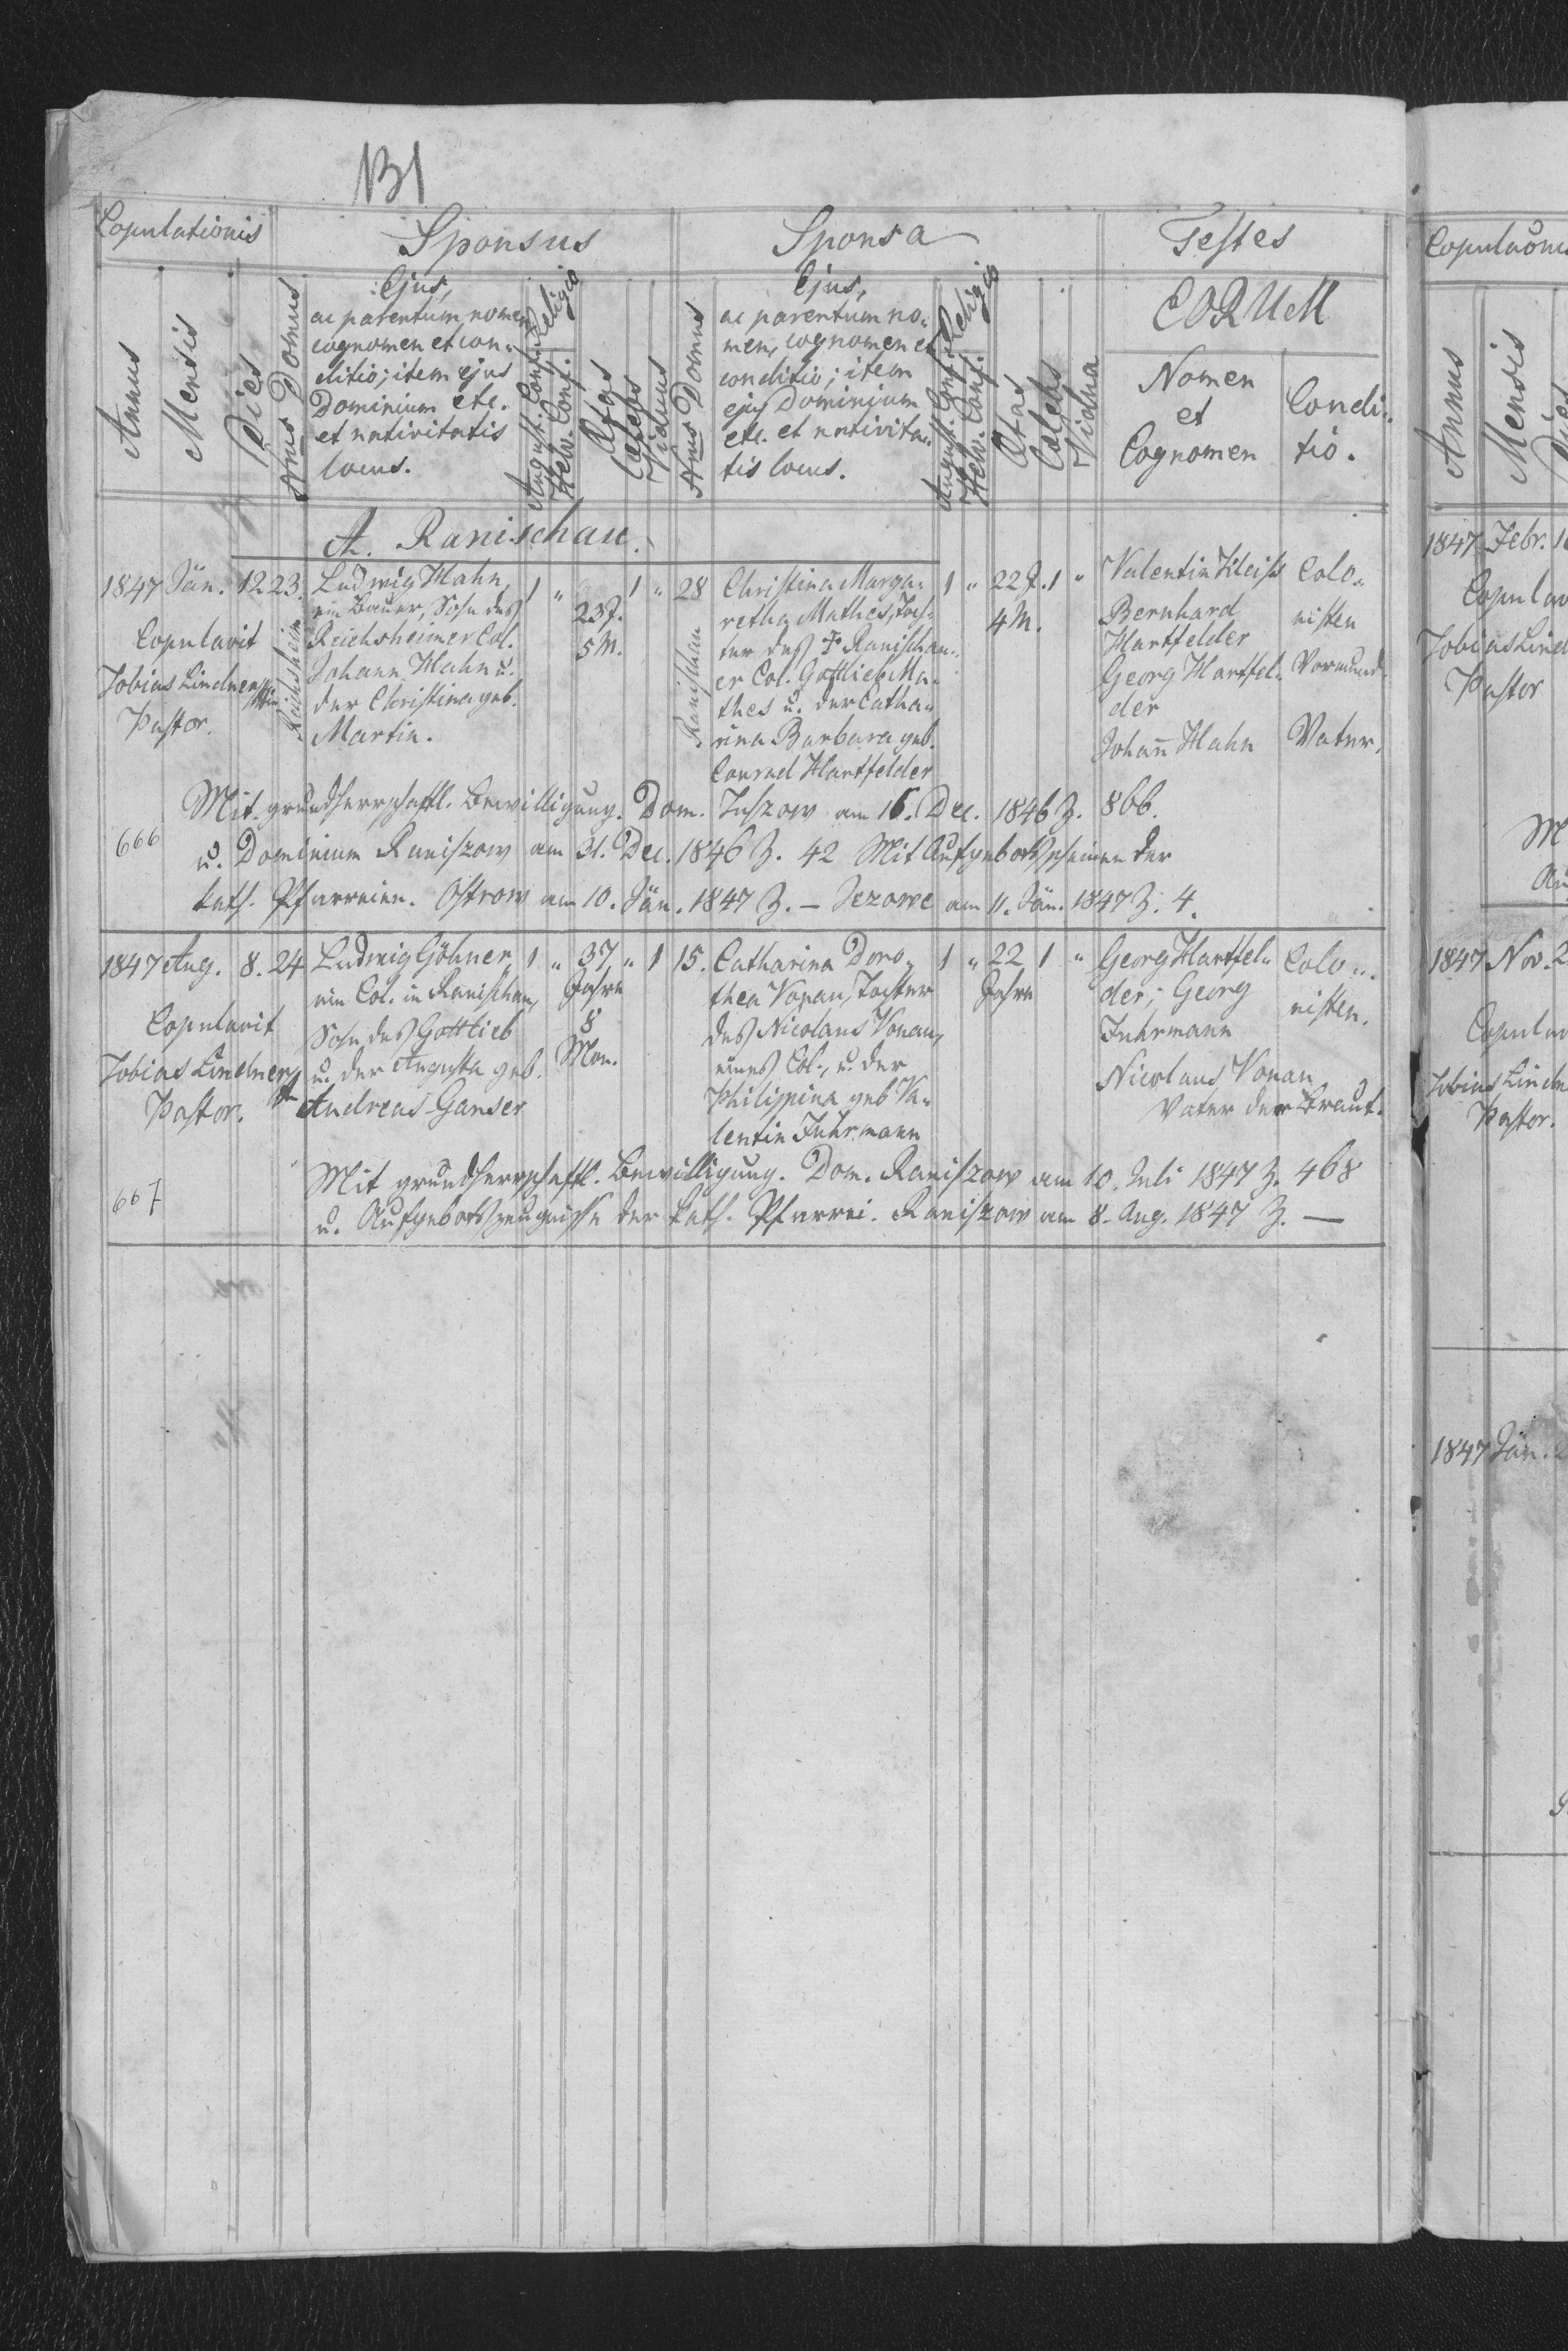 131
Copulationis
Sponsus
Sponsa
Testes
Annus
Mensis
Dies
Nrus Domus
Ejus,
ac parentum nomen
cognomen et con-
ditio; item ejus
Dominium etc.
et nativitatis
locus.
Religio
August. Conf.
Helv. Conf.
Ætas
Cælebs
Viduus
Nrus Domus
Ejus,
ac parentum no-
men, cognomen et
conditio; item
ejus Dominium
etc. et nativita-
tis locus.
Religio
August. Conf.
Helv. Conf.
Ætas
Cælebs
Vidua
EORUM
Nomen
et
Cognomen
Condi-
tio.
A. Ranischau.
1847 Jän. 12 23.
Copulavit
Tobias Lindner
Pastor.
Reichsheim
Ludwig Hahn,
ein Bauer, Sohn des
Reichsheimer Col.
Johann Hahn u.
der Christina geb.
Martin.
1 "
23 J.
5 M.
1 "
28
Ranischau
Christina Marga-
retha Mathes, Toch-
ter des † Ranischau-
er Col. Gottlieb Ma-
thes u. der Catha-
rina Barbara geb.
Conrad Hartfelder
1 " 22 J. 1 "
4 M.
Valentin Kleiss
Bernhard
Hartfelder
Georg Hartfel-
der
Johan̄ Hahn
Colo-
nisten
Vormund
Vater.
Mit grundherrschaftl. Bewilligung. Dom. Tuszow am 16. Dec. 1846 Z. 866.
666
u. Dominium Raniszow am 31. Dec. 1846 Z. 42 Mit Aufgebotsscheinen der
kath. Pfarreien. Ostrow am 10. Jän. 1847 Z. – Jezowe am 11. Jän. 1847 Z. 4.
1847 Aug. 8. 24
Copulavit
Tobias Lindner
Pastor.
Ludwig Göhner
ein Col. in Ranischau,
Sohn des Gottlieb
u. der Augusta geb.
Andreas Ganser
1 " 37 " 1
Jahre
8
Mon.
15.
Catharina Doro-
thea Vonau, Tochter
des Nicolaus Vonau,
eines Col., u. der
Philippina geb Va-
lentin Fuhrmann
1 " 22 1 "
Jahre
Georg Hartfel-
der; Georg
Fuhrmann
Nicolaus Vonau
Vater der Braut.
Colo-
nisten.
667
Mit grundherrschaftl. Bewilligung. Dom. Raniszow am 10. Juli 1847 Z. 468
u. Aufgebotszeugnisse der kath. Pfarrei. Raniszow am 8. Aug. 1847 Z. —
Annus
Mensis
1847 Febr.
Pastor
1847 Nov. 2
Pastor.
1847 Jän.